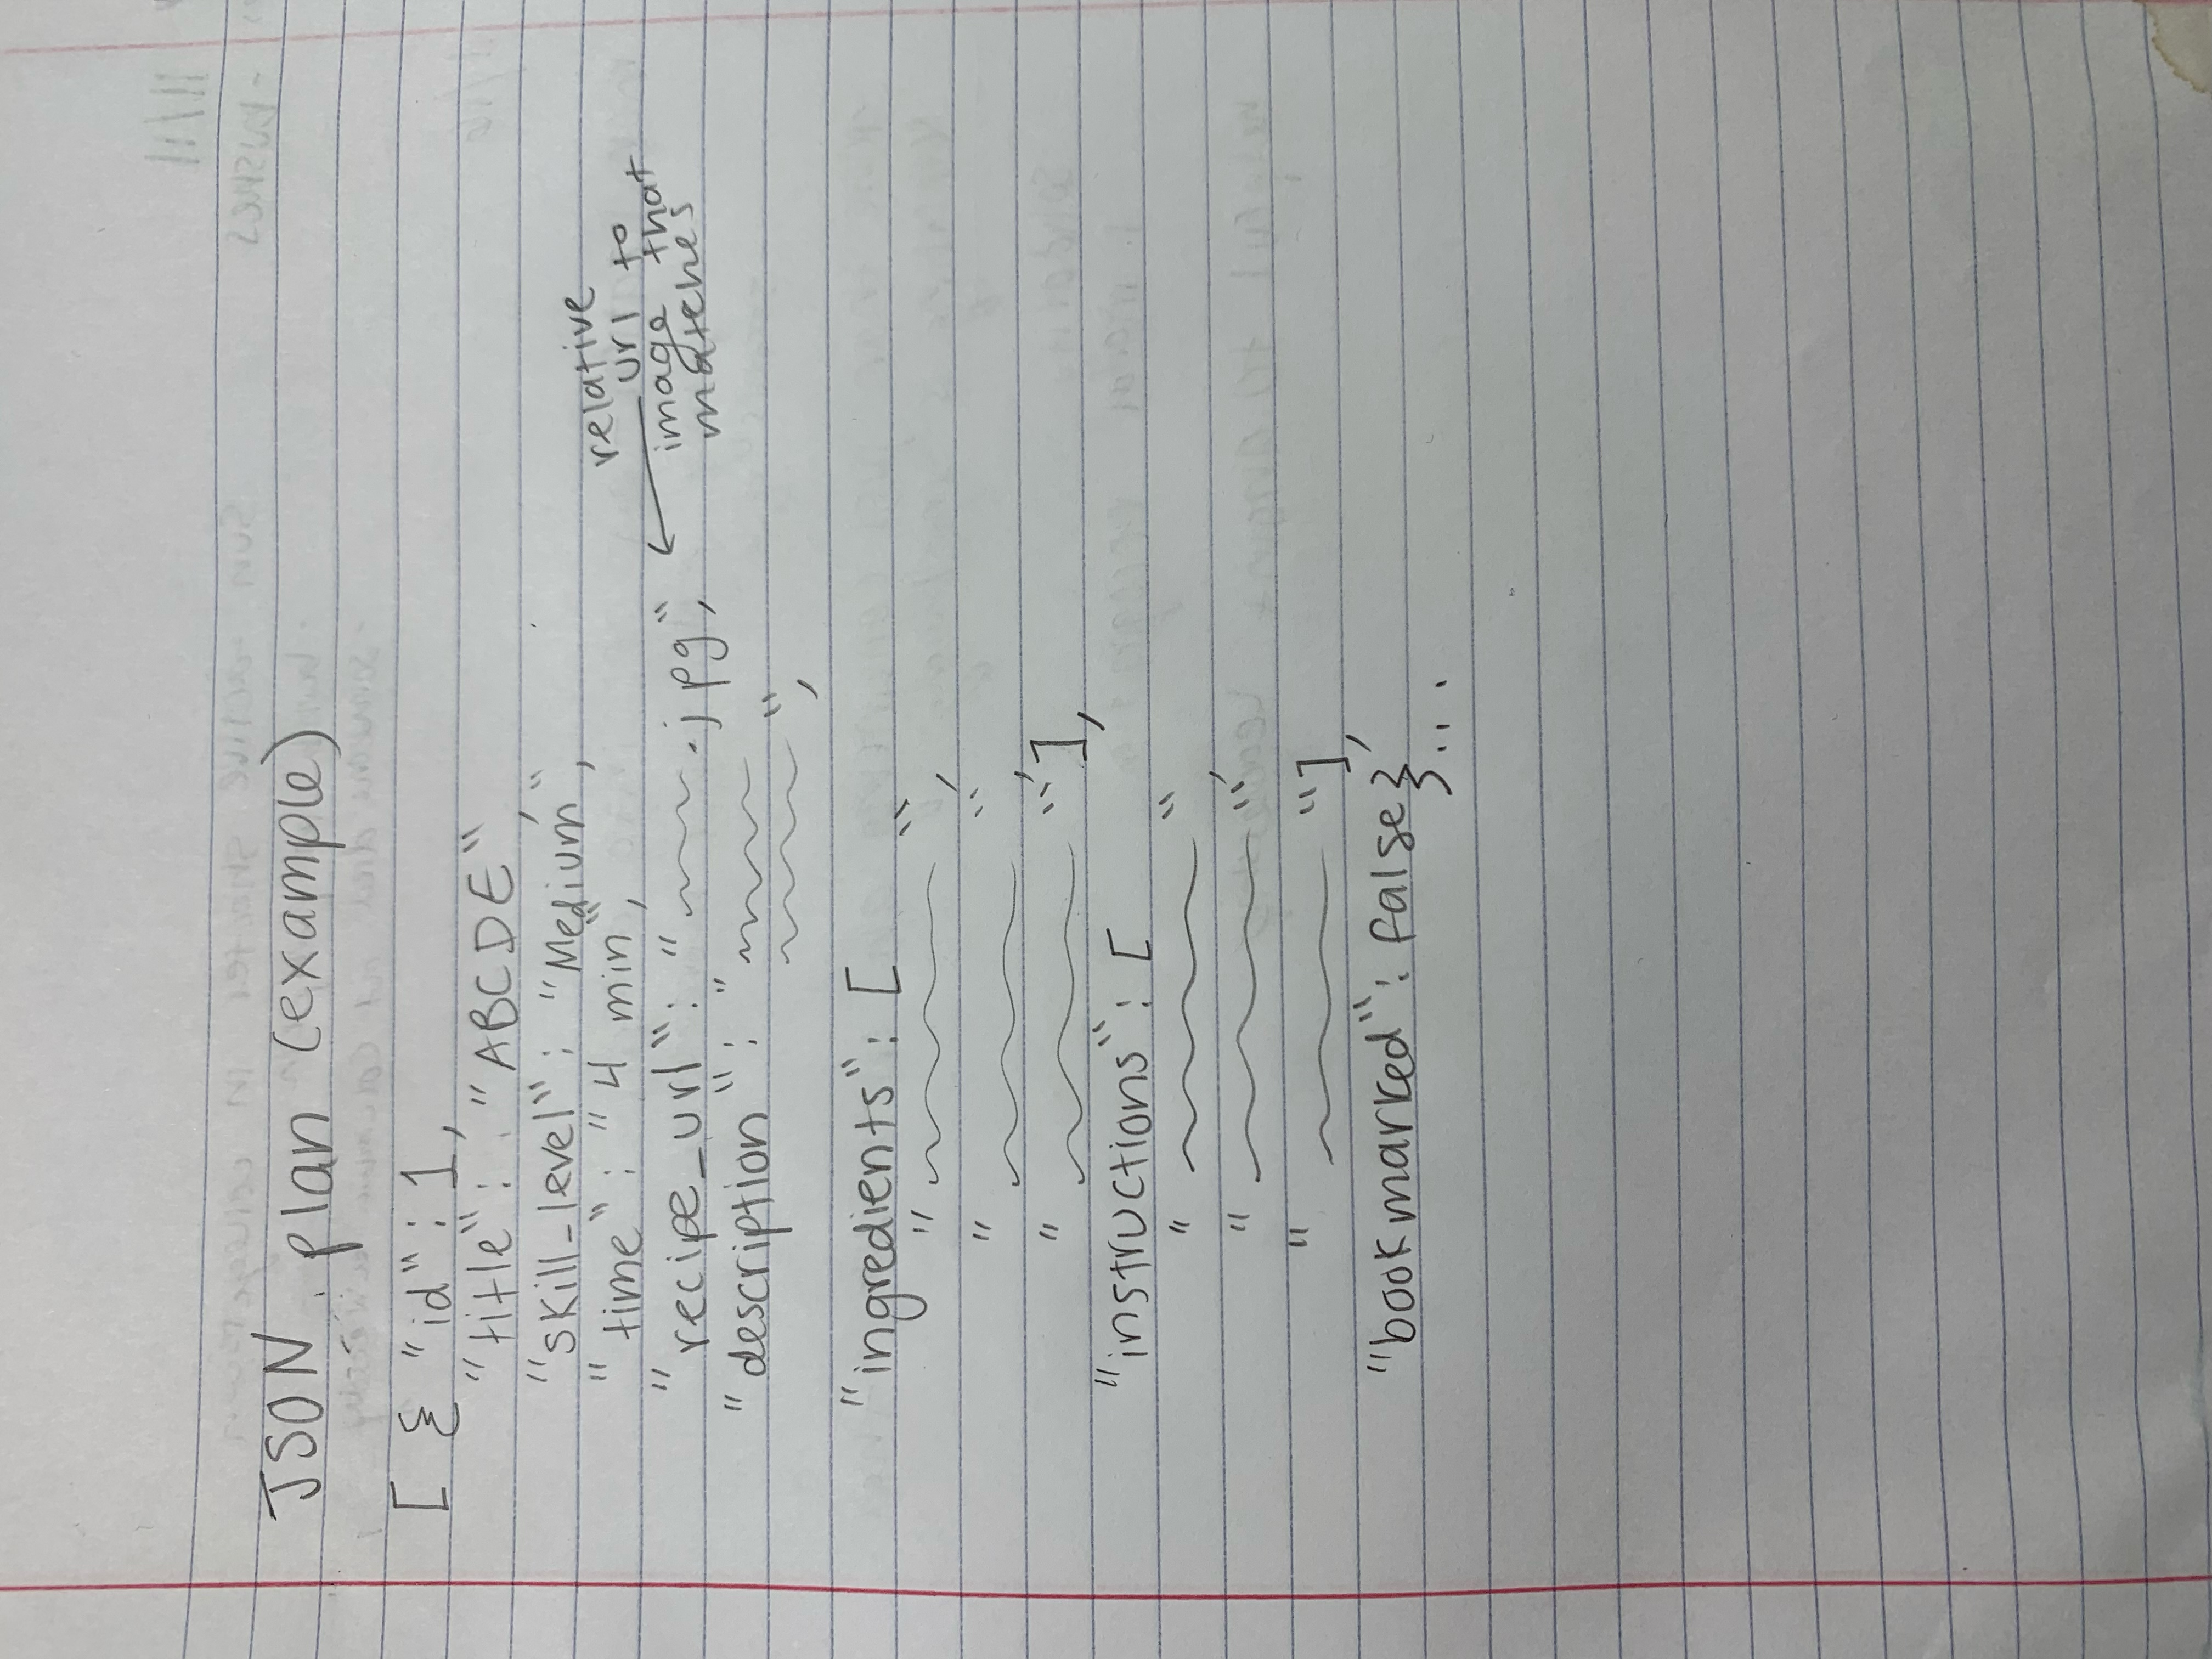 JSON plan (example)
[ { "id": 1,
"title": "ABCDE",
"skill_level": "Medium",
"time": "4 min",
"recipe_url": " .jpg",
relative
url to
image that
matches
"description": "
",
"ingredients": [
" ",
" ",
" "],
"instructions": [
" ",
" "
" "],
"bookmarked": false}
}...